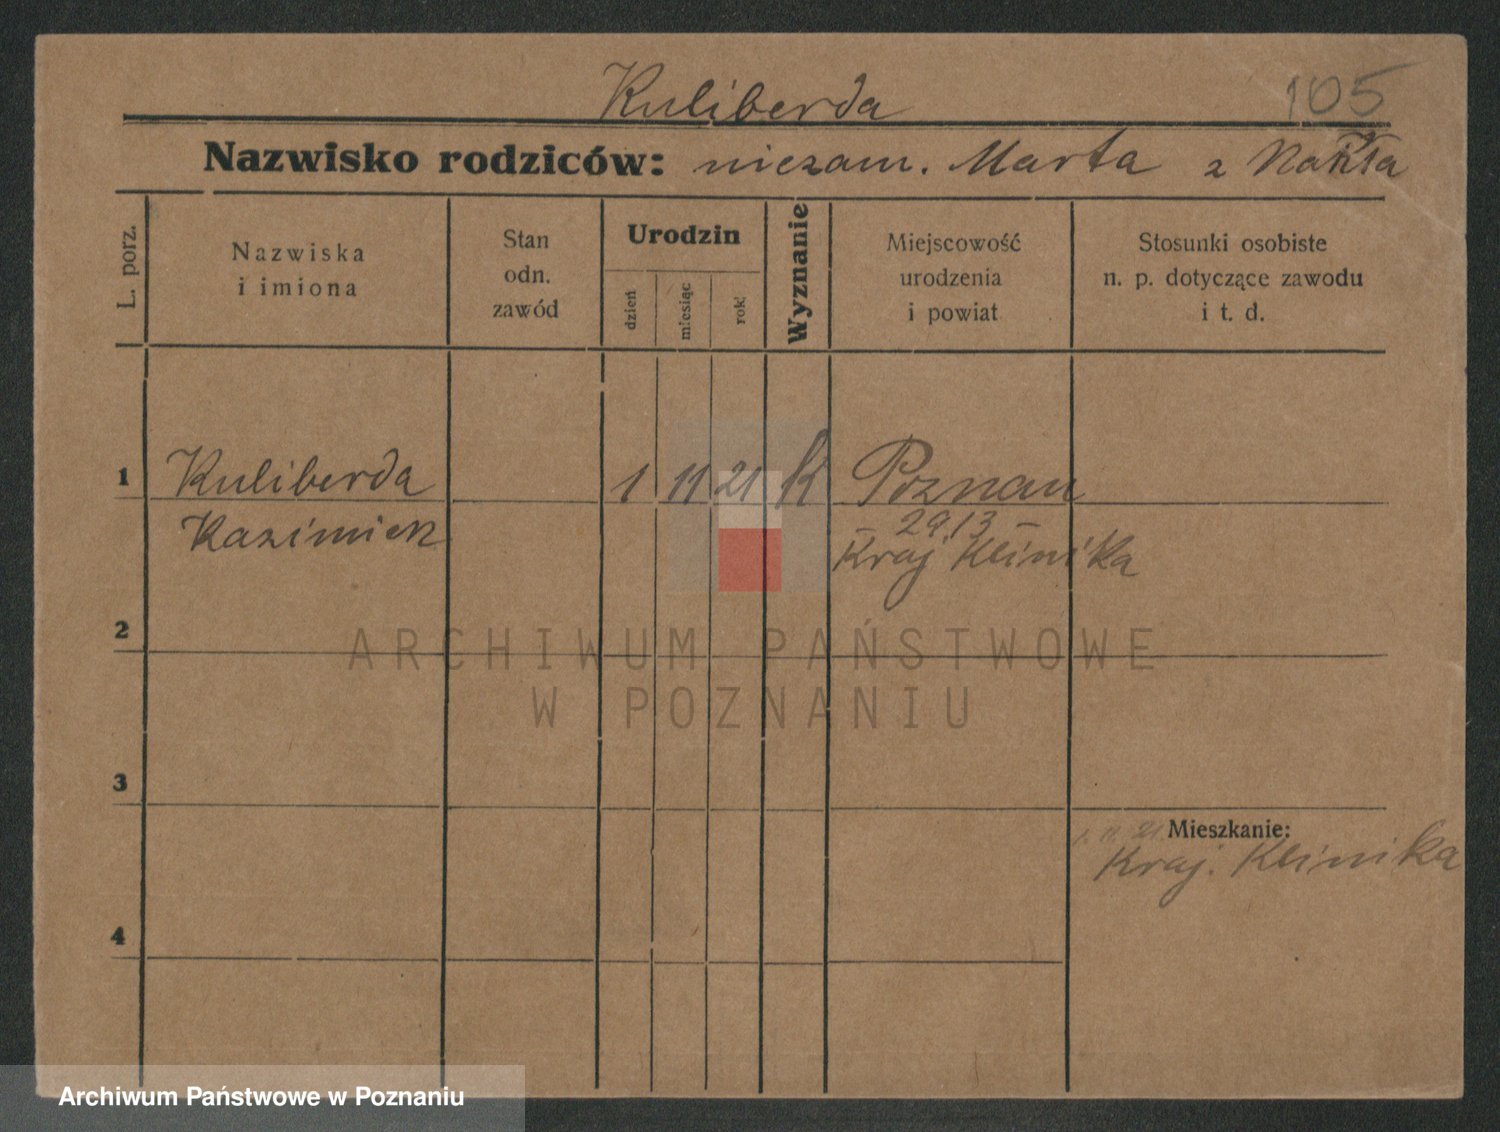 Kuliberda
105
Nazwisko rodziców: niezam. Marta z Nakła
L. porz.
Nazwiska
i imiona
Stan
odn.
zawód
Urodzin
dzień
miesiąc
rok
Wyznanie
Miejscowość
urodzenia
i powiat
Stosunki osobiste
n. p. dotyczące zawodu
i t. d.
1 Kuliberda 1 11 21 k Poznan
Kazimierz
– 2913 –
Kraj. Klinika
2
ARCHIWUM PAŃSTWOWE
W POZNANIU
3
1. 11. 21. Mieszkanie:
Kraj. Klinika
4
Archiwum Państwowe w Poznaniu